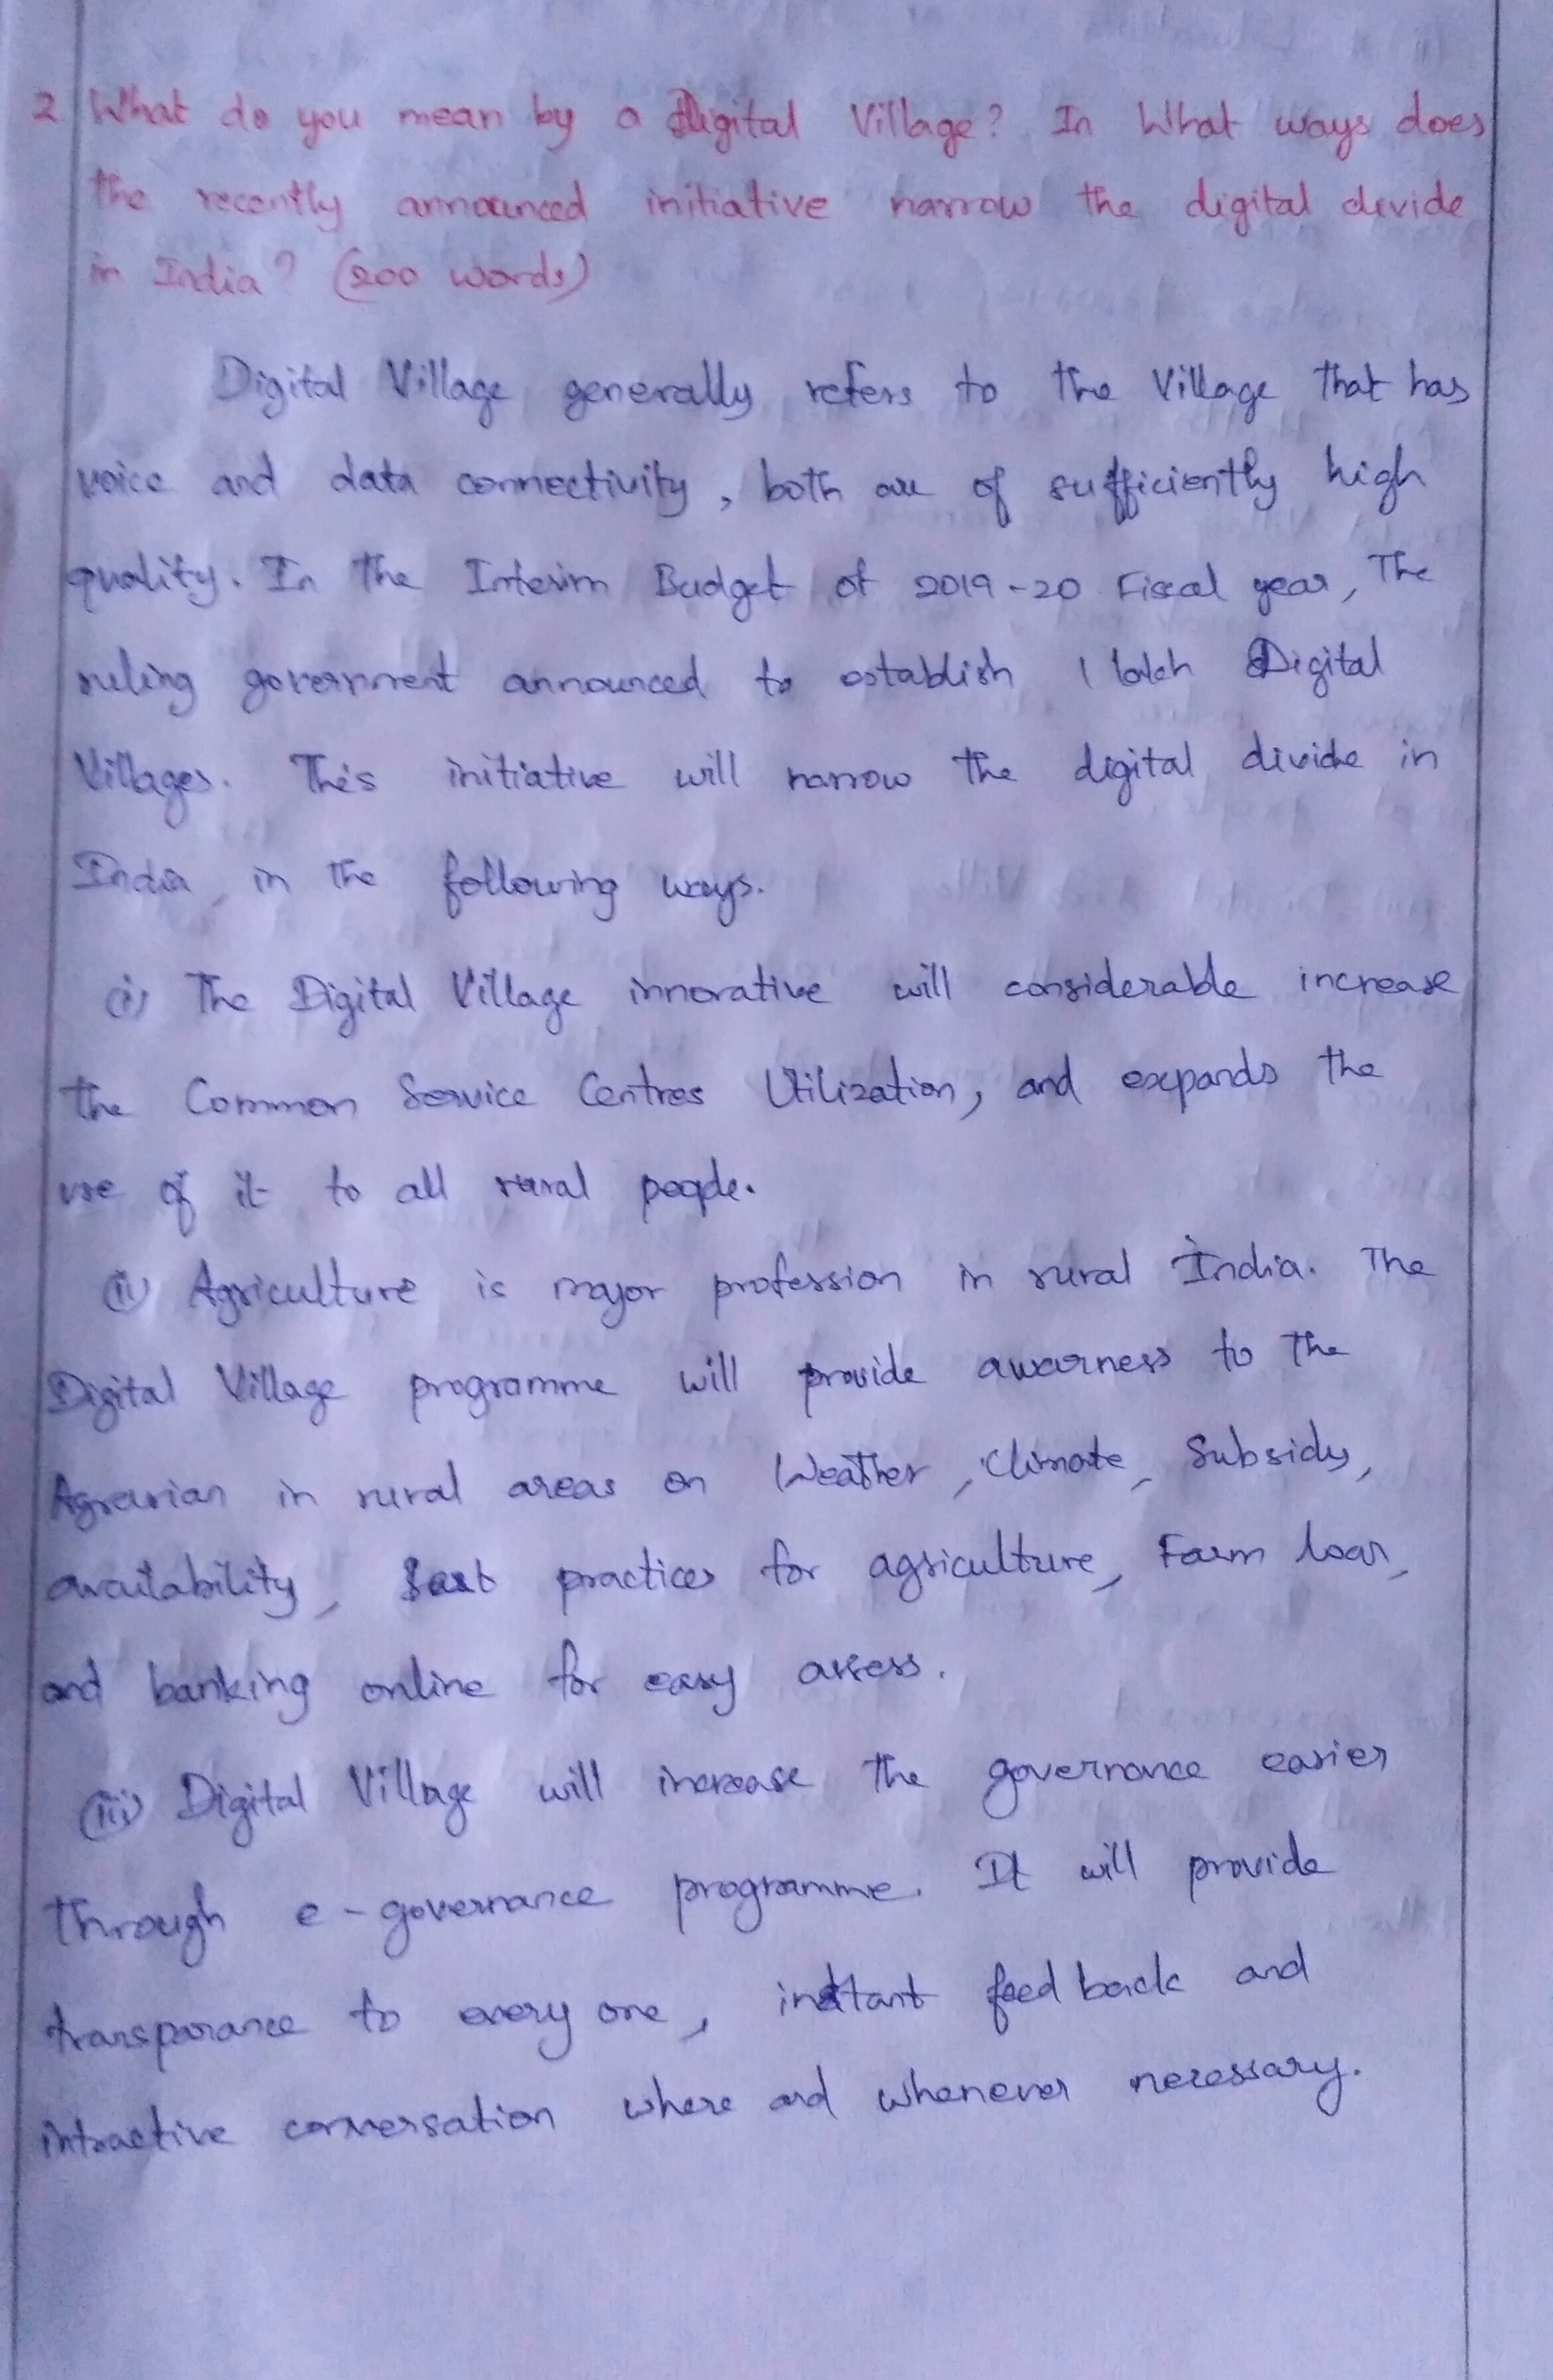 2 What do you mean by a Digital Village? In What ways does
the recently announced initiative narrow the digital devide
in India? (200 words)
Digital Village generally refers to the Village that has
voice and data connectivity, both are of sufficiently high
quality. In the Interim Budget of 2019-20 Fiscal year, The
ruling government announced to establish 1 lakh Digital
Villages. This initiative will narrow the digital divide in
India, in the following ways.
(i) The Digital Village innovative will considerable increase
the Common Service Centres Utilization, and expands the
use of it to all rural people.
(ii) Agriculture is major profession in rural India. The
Digital Village programme will provide awarness to the
Agrarian in rural areas on Weather, Climate, Subsidy,
availability, Best practices for agriculture, Farm loan,
and banking online for easy assess.
(iii) Digital Village will increase the governance easier
through e-governance programme. It will provide
transparance to every one, instant feed back and
intractive conversation where and whenever necessary.